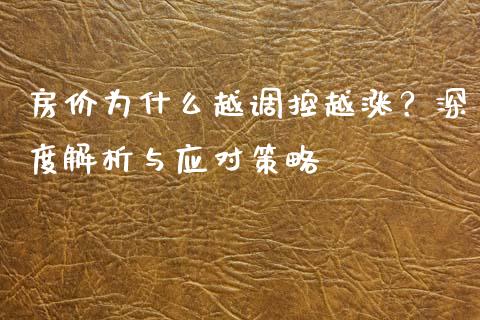 房价为什么越调控越涨？深
度解析与应对策略